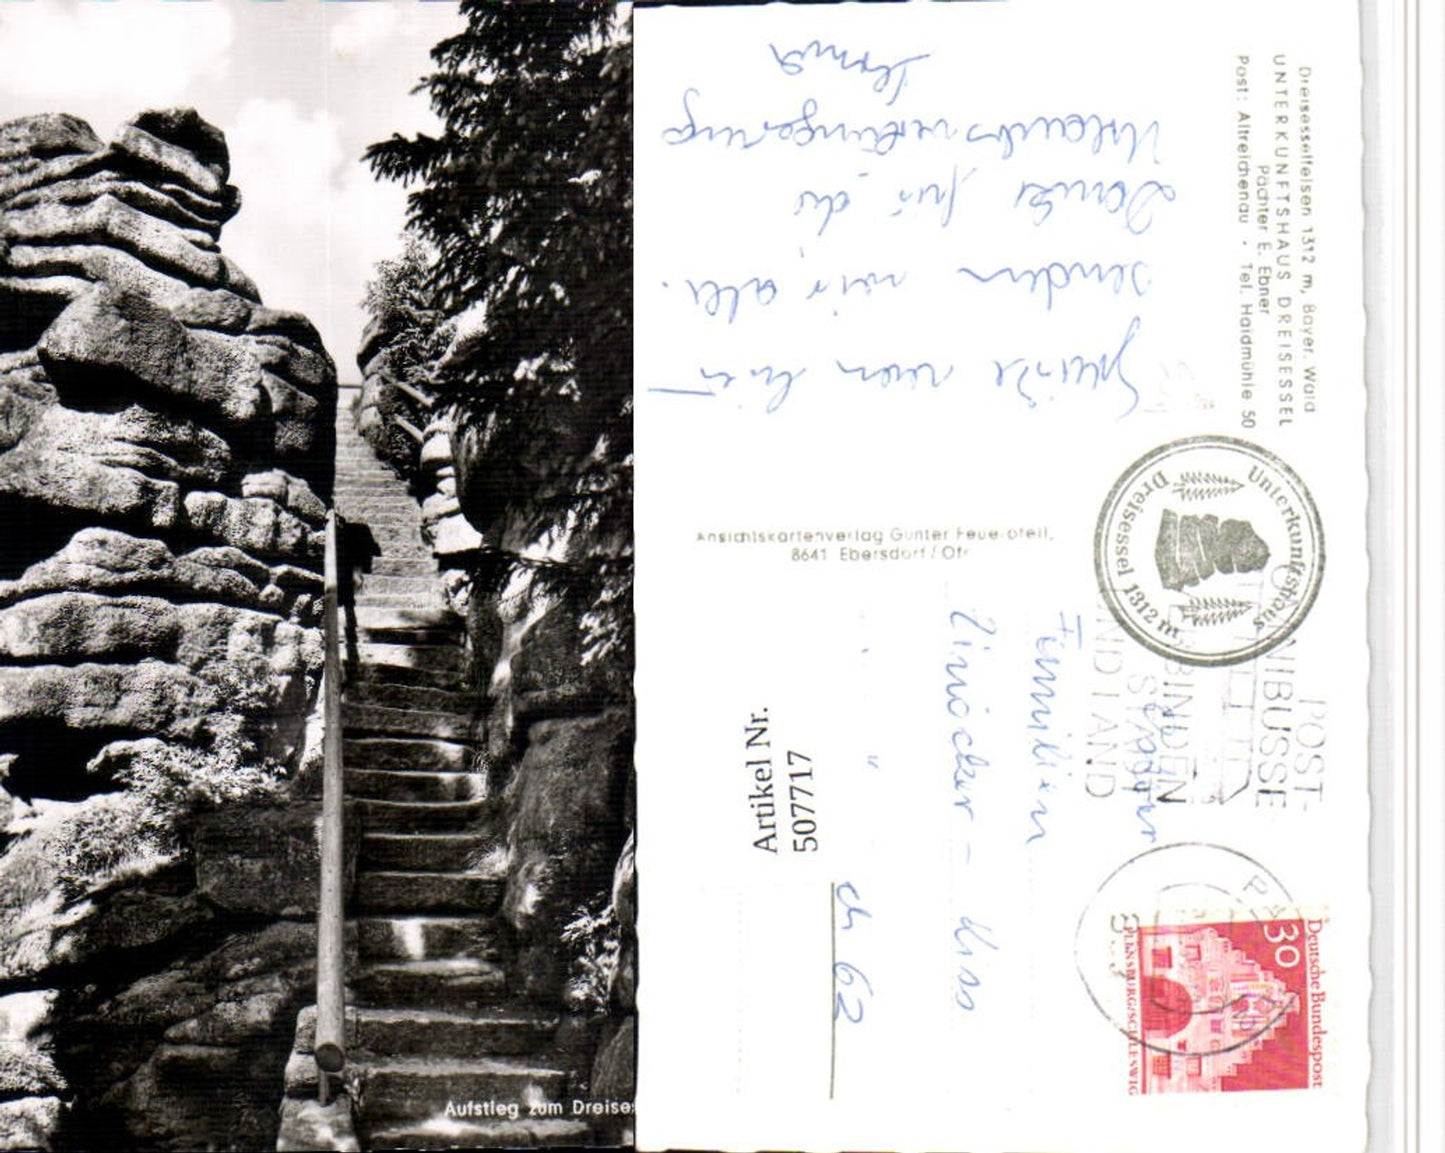 Aufstieg zum Dreises
Dreisesselfelsen 1312 m, Bayer. Wald
UNTERKUNFTSHAUS DREISESSEL
Pächter E. Ebner
Post: Altreichenau · Tel. Haidmühle 50
senden wir allen.
Danke für die
Urlaubsverlängerung
Ansichtskartenverlag Günter Feuerpfeil,
8641 Ebersdorf/Ofr
Unterkunftshaus
Dreisessel 1312 m
POST-
OMNIBUSSE
VERBINDEN
STADT
UND LAND
Deutsche Bundespost
30
FLENSBURG/SCHLESWIG
Familien
Artikel Nr.
507717